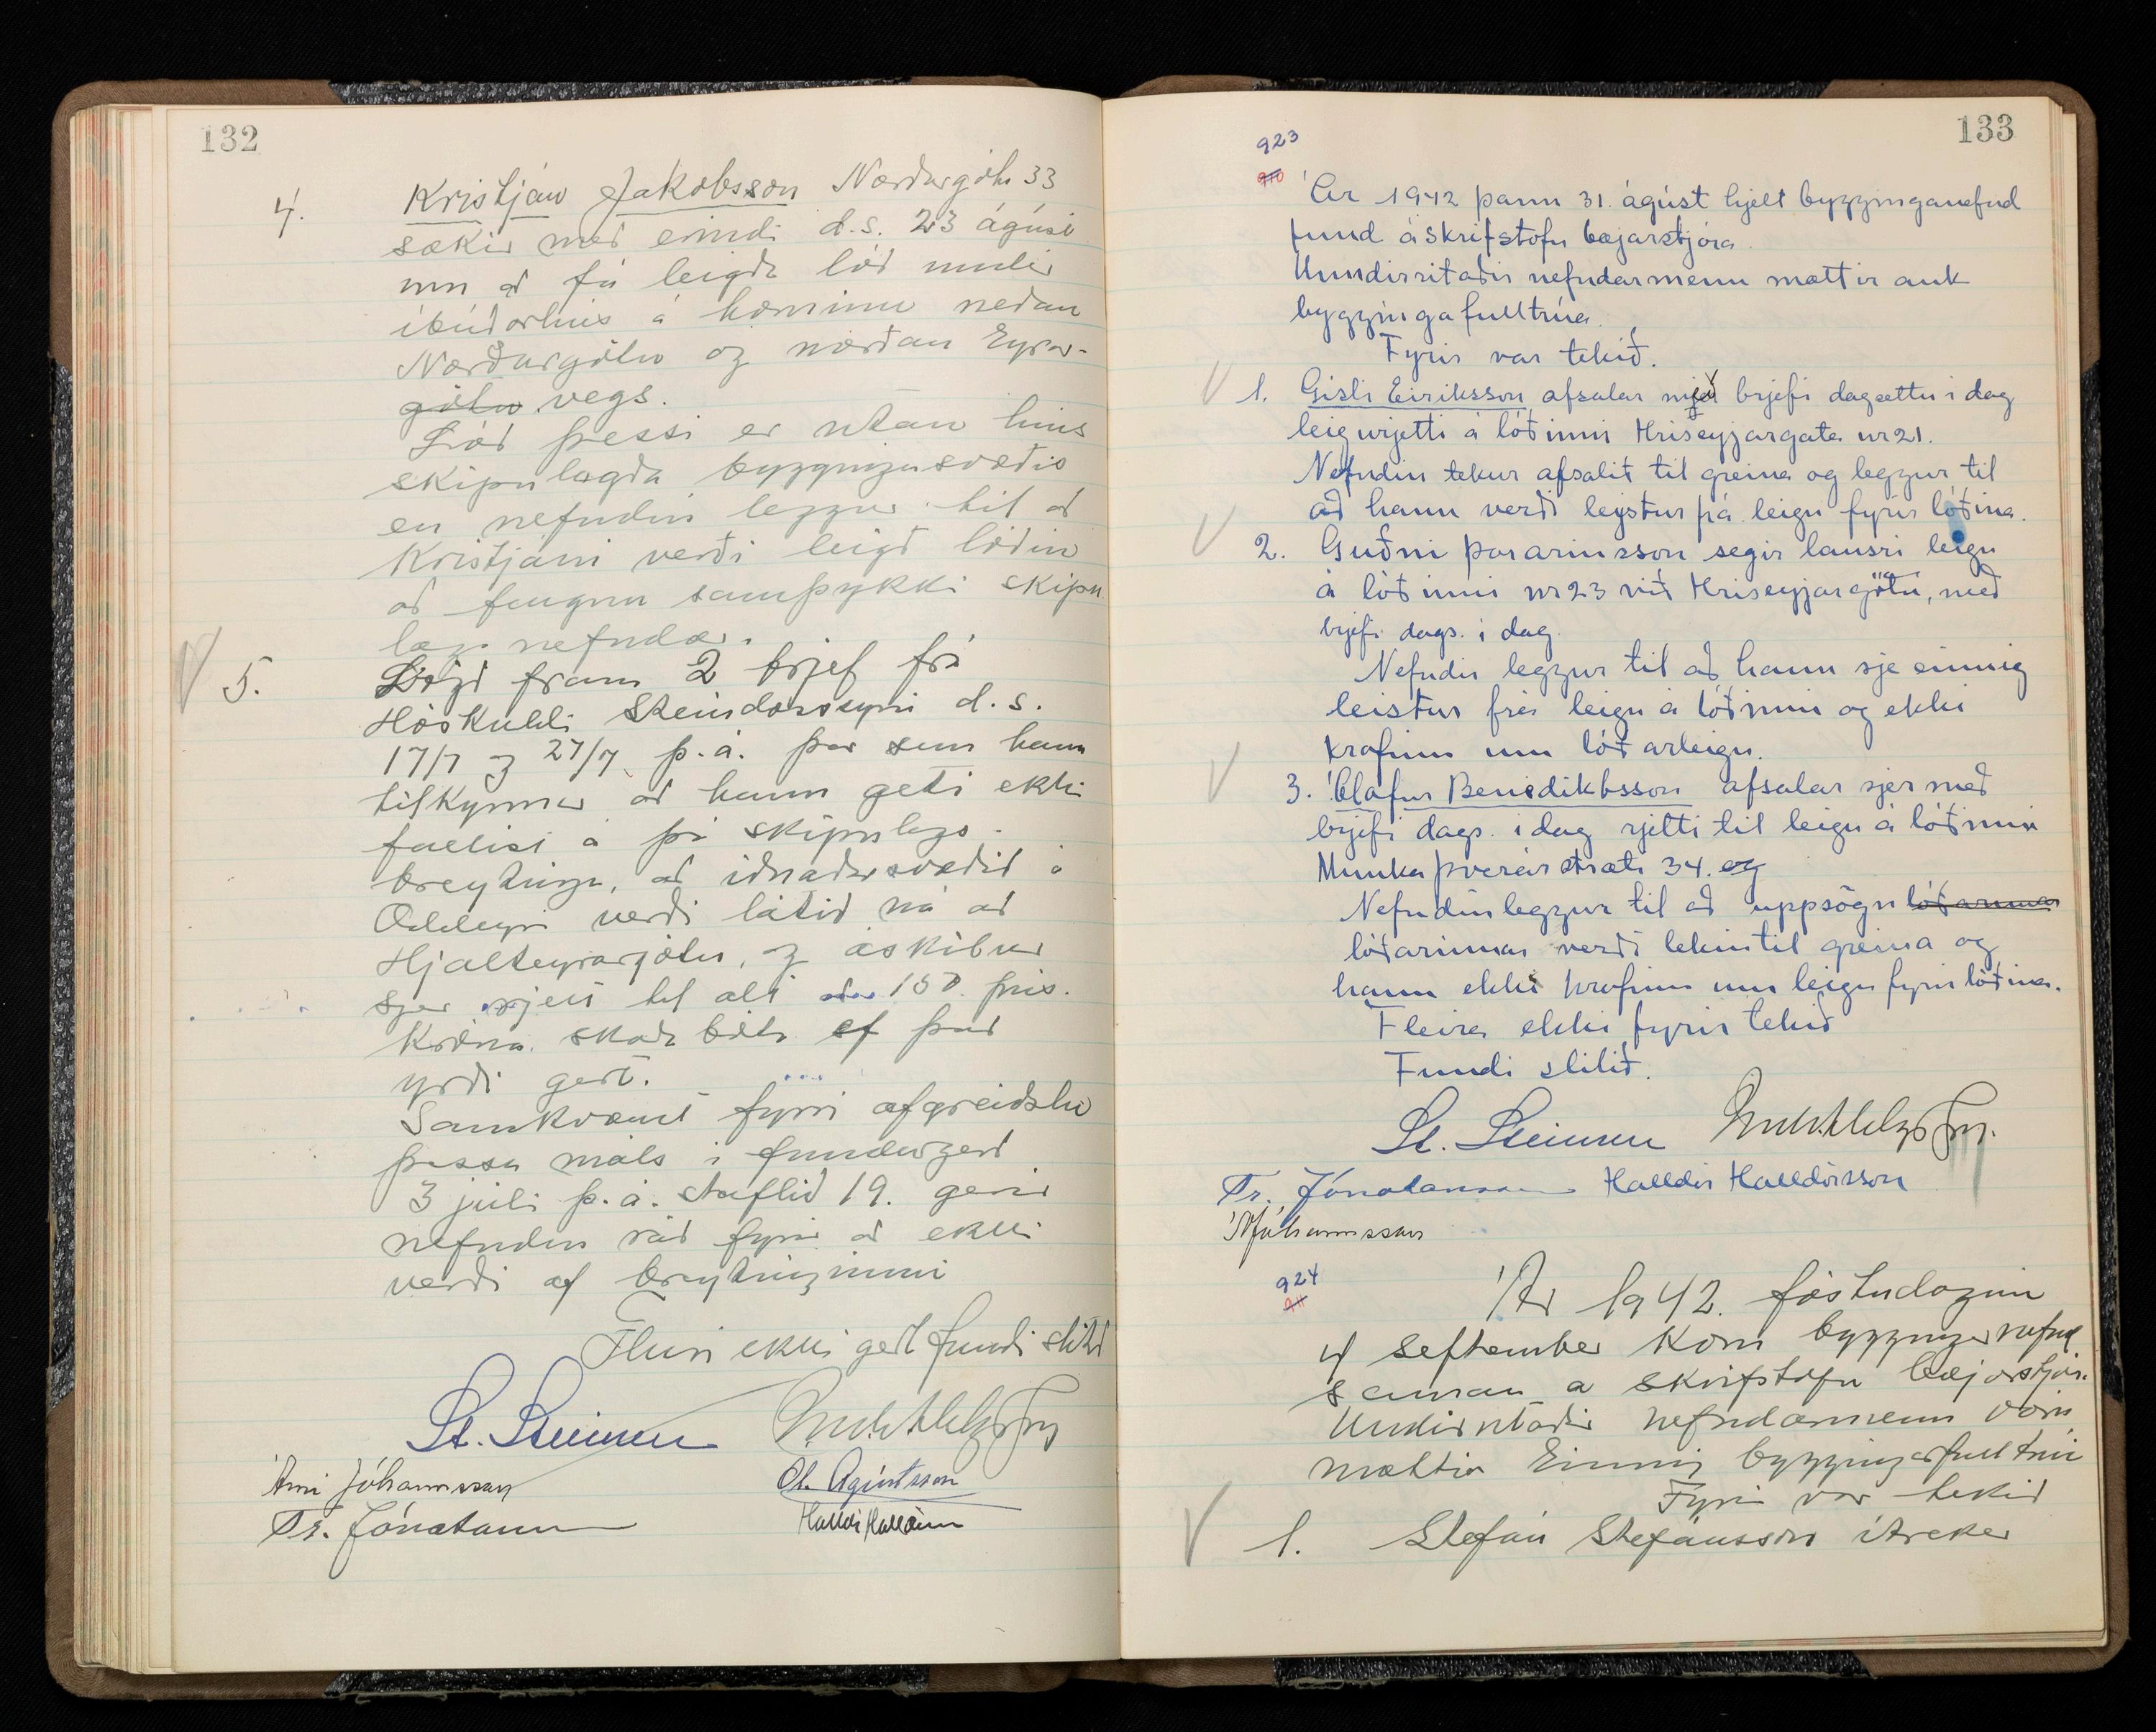 132
4. Kristján Jakobsson Norðurgötu 33
sækir með erindi d.s. 23 ágúst
um að fá leigða lóð undir
íbúðarhús á horninu neðan
Norðurgötu og norðan Eyrar-
götu vegs.
Lóð þessi er utan hins
skipulagða byggingasvæðis
en nefndin leggur til að
Kristjáni verði leigð lóðin
að fengnu samþykki skipu
lags nefndar.
5. Lögð fram 2 brjef frá
Höskuldi Steindórssyni d.s.
17/7 og 27/7 þ.á. þar sem hann
tilkynnir að hann geti ekki
fallist á þá skipulags-
breytingu, að iðnaðarsvæðið á
Oddeyri verði látið ná að
Hjalteyrargötu, og áskilur
sjer rjett til alt að 150 þús.
króna skaða bóta ef það
yrði gert.
Samkvæmt fyrri afgreiðslu
þessa máls í fundargerð
3 júlí þ.á. staflið 19. gerir
nefndin ráð fyrir að ekki
verði af breytingunni
Fleira ekki gert fundi slitið
St. Steinsen
Árni Jóhannsson
Ól. Ágústsson
Tr. Jónatansson
Halldór Halldórsson
133
923
910
Ár 1942 þann 31. ágúst hjelt bygginganefnd
fund á skrifstofu bæjarstjóra.
Undirritaðir nefndarmenn mættir auk
byggingafulltrúa.
Fyrir var tekið.
1. Gísli Eiríksson afsalar með brjefi dagsettu í dag
leigurjetti á lóðinni Hríseyjargata nr 21.
Nefndin tekur afsalið til greina og leggur til
að hann verði leystur frá leigu fyrir lóðina.
2. Guðni Þórarinsson segir lausri leigu
á lóðinni nr 23 við Hríseyjargötu, með
brjefi dags. í dag.
Nefndin leggur til að hann sje einnig
leistur frá leigu á lóðinni og ekki
krafinn um lóðarleigu.
3. Ólafur Benediktsson afsalar sjer með
brjefi dags. í dag rjetti til leigu á lóðinni
Munkaþverárstræti 34. og
Nefndin leggur til að uppsögn lóðarinnar
lóðarinnar verði tekin til greina og
hann ekki krafinn um leigu fyrir lóðina.
Fleira ekki fyrir tekið
Fundi slitið.
St. Steinsen
Tr. Jónatansson Halldór Halldórsson
ÁJóhannsson
924
911
Ár 1942. föstudaginn
4 september kom bygginganefnd
saman á skrifstofu bæjarstjóra.
Undirritaðir nefndarmenn voru
mættir Einnig byggingarfulltrúi
Fyrir var tekið
1. Stefán Stefánsson ítrekar